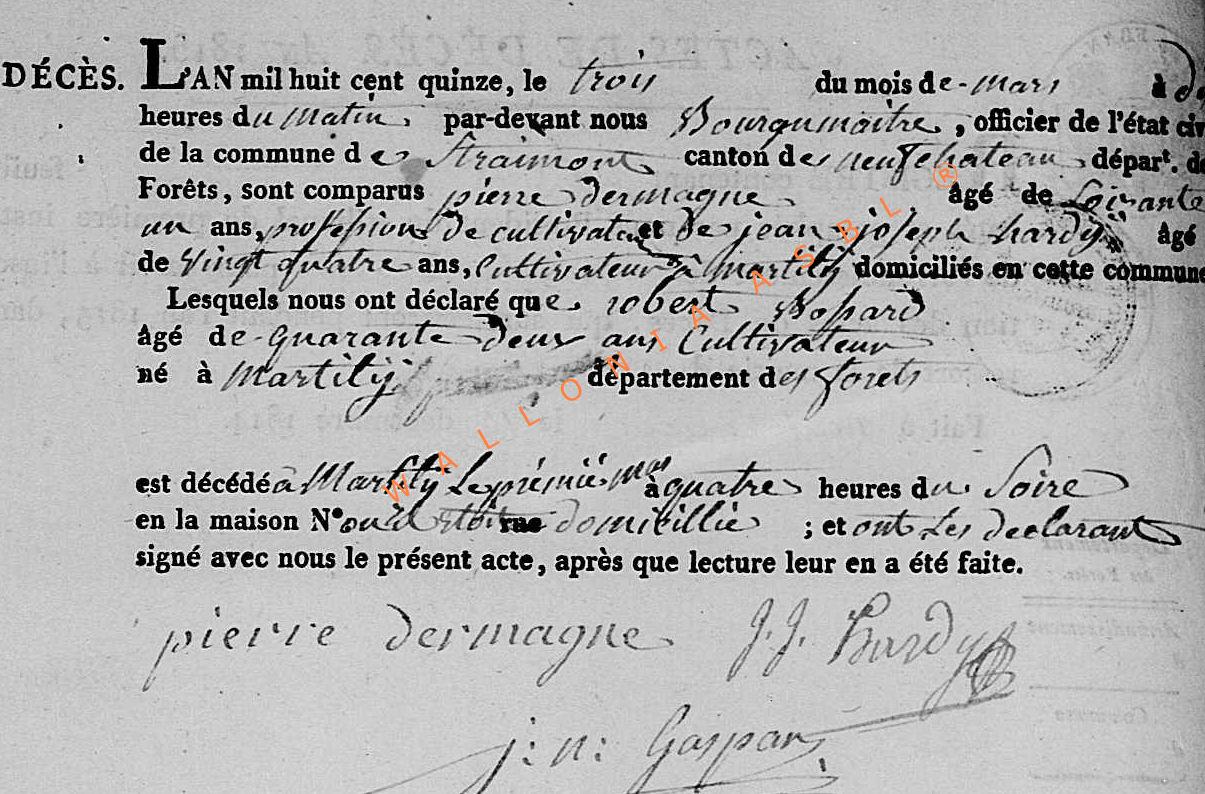 DÉCÈS. L'AN mil huit cent quinze, le trois du mois de mars à
heures du matin, par-devant nous Bourgumaitre, officier de l'état civ
de la commune de Straimont canton de neufchateau, départ. de
Forêts, sont comparus pierre dermagne âgé de Soixante
un ans, profession de cultivateur et de jean joseph hardÿ âgé
de vingt quatre ans, Cultivateur à Martilÿ domiciliés en cette commune
Lesquels nous ont déclaré que robert Bossard
âgé de quarante deux ans Cultivateur
né à Martilÿ département des forets
est décédé à Martilÿ le prémié mar à quatre heures du Soire
en la maison N° ou il etoit rue domicillié ; et ont Les declarant
signé avec nous le présent acte, après que lecture leur en a été faite.
pierre dermagne J. J. Hardy
j: n: Gaspar
WALLONIA ASBL ®